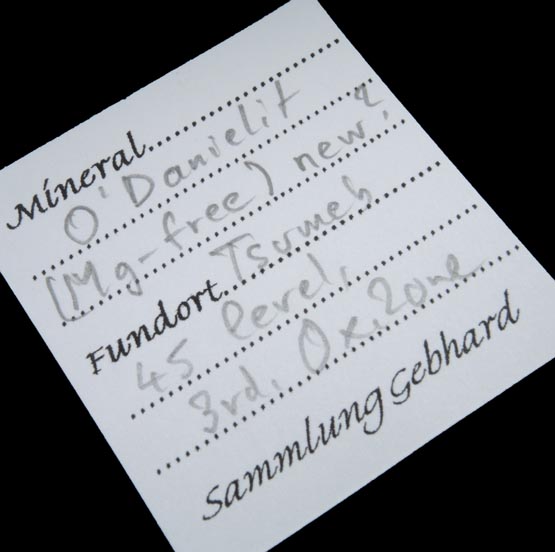 Mineral
O'Danielit
(Mg-free) new?
Fundort Tsumeb
45 level,
3rd. Ox. Zone
Sammlung Gebhard